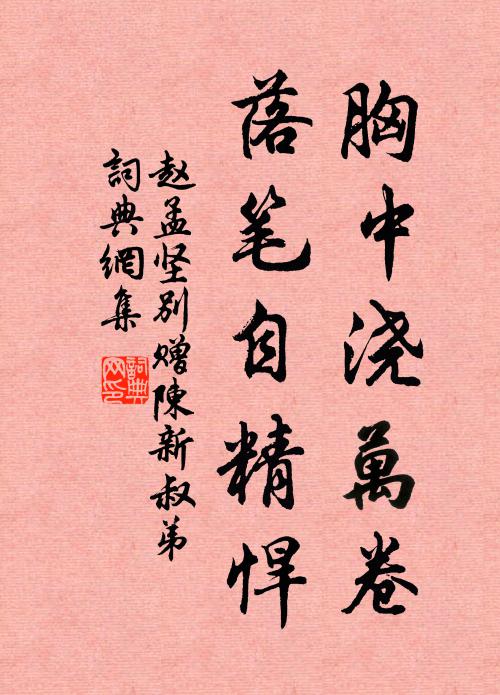 胸中浇萬卷
落笔自精悍
赵孟坚别赠陳新叔弟
詞典網集
詞典
网印